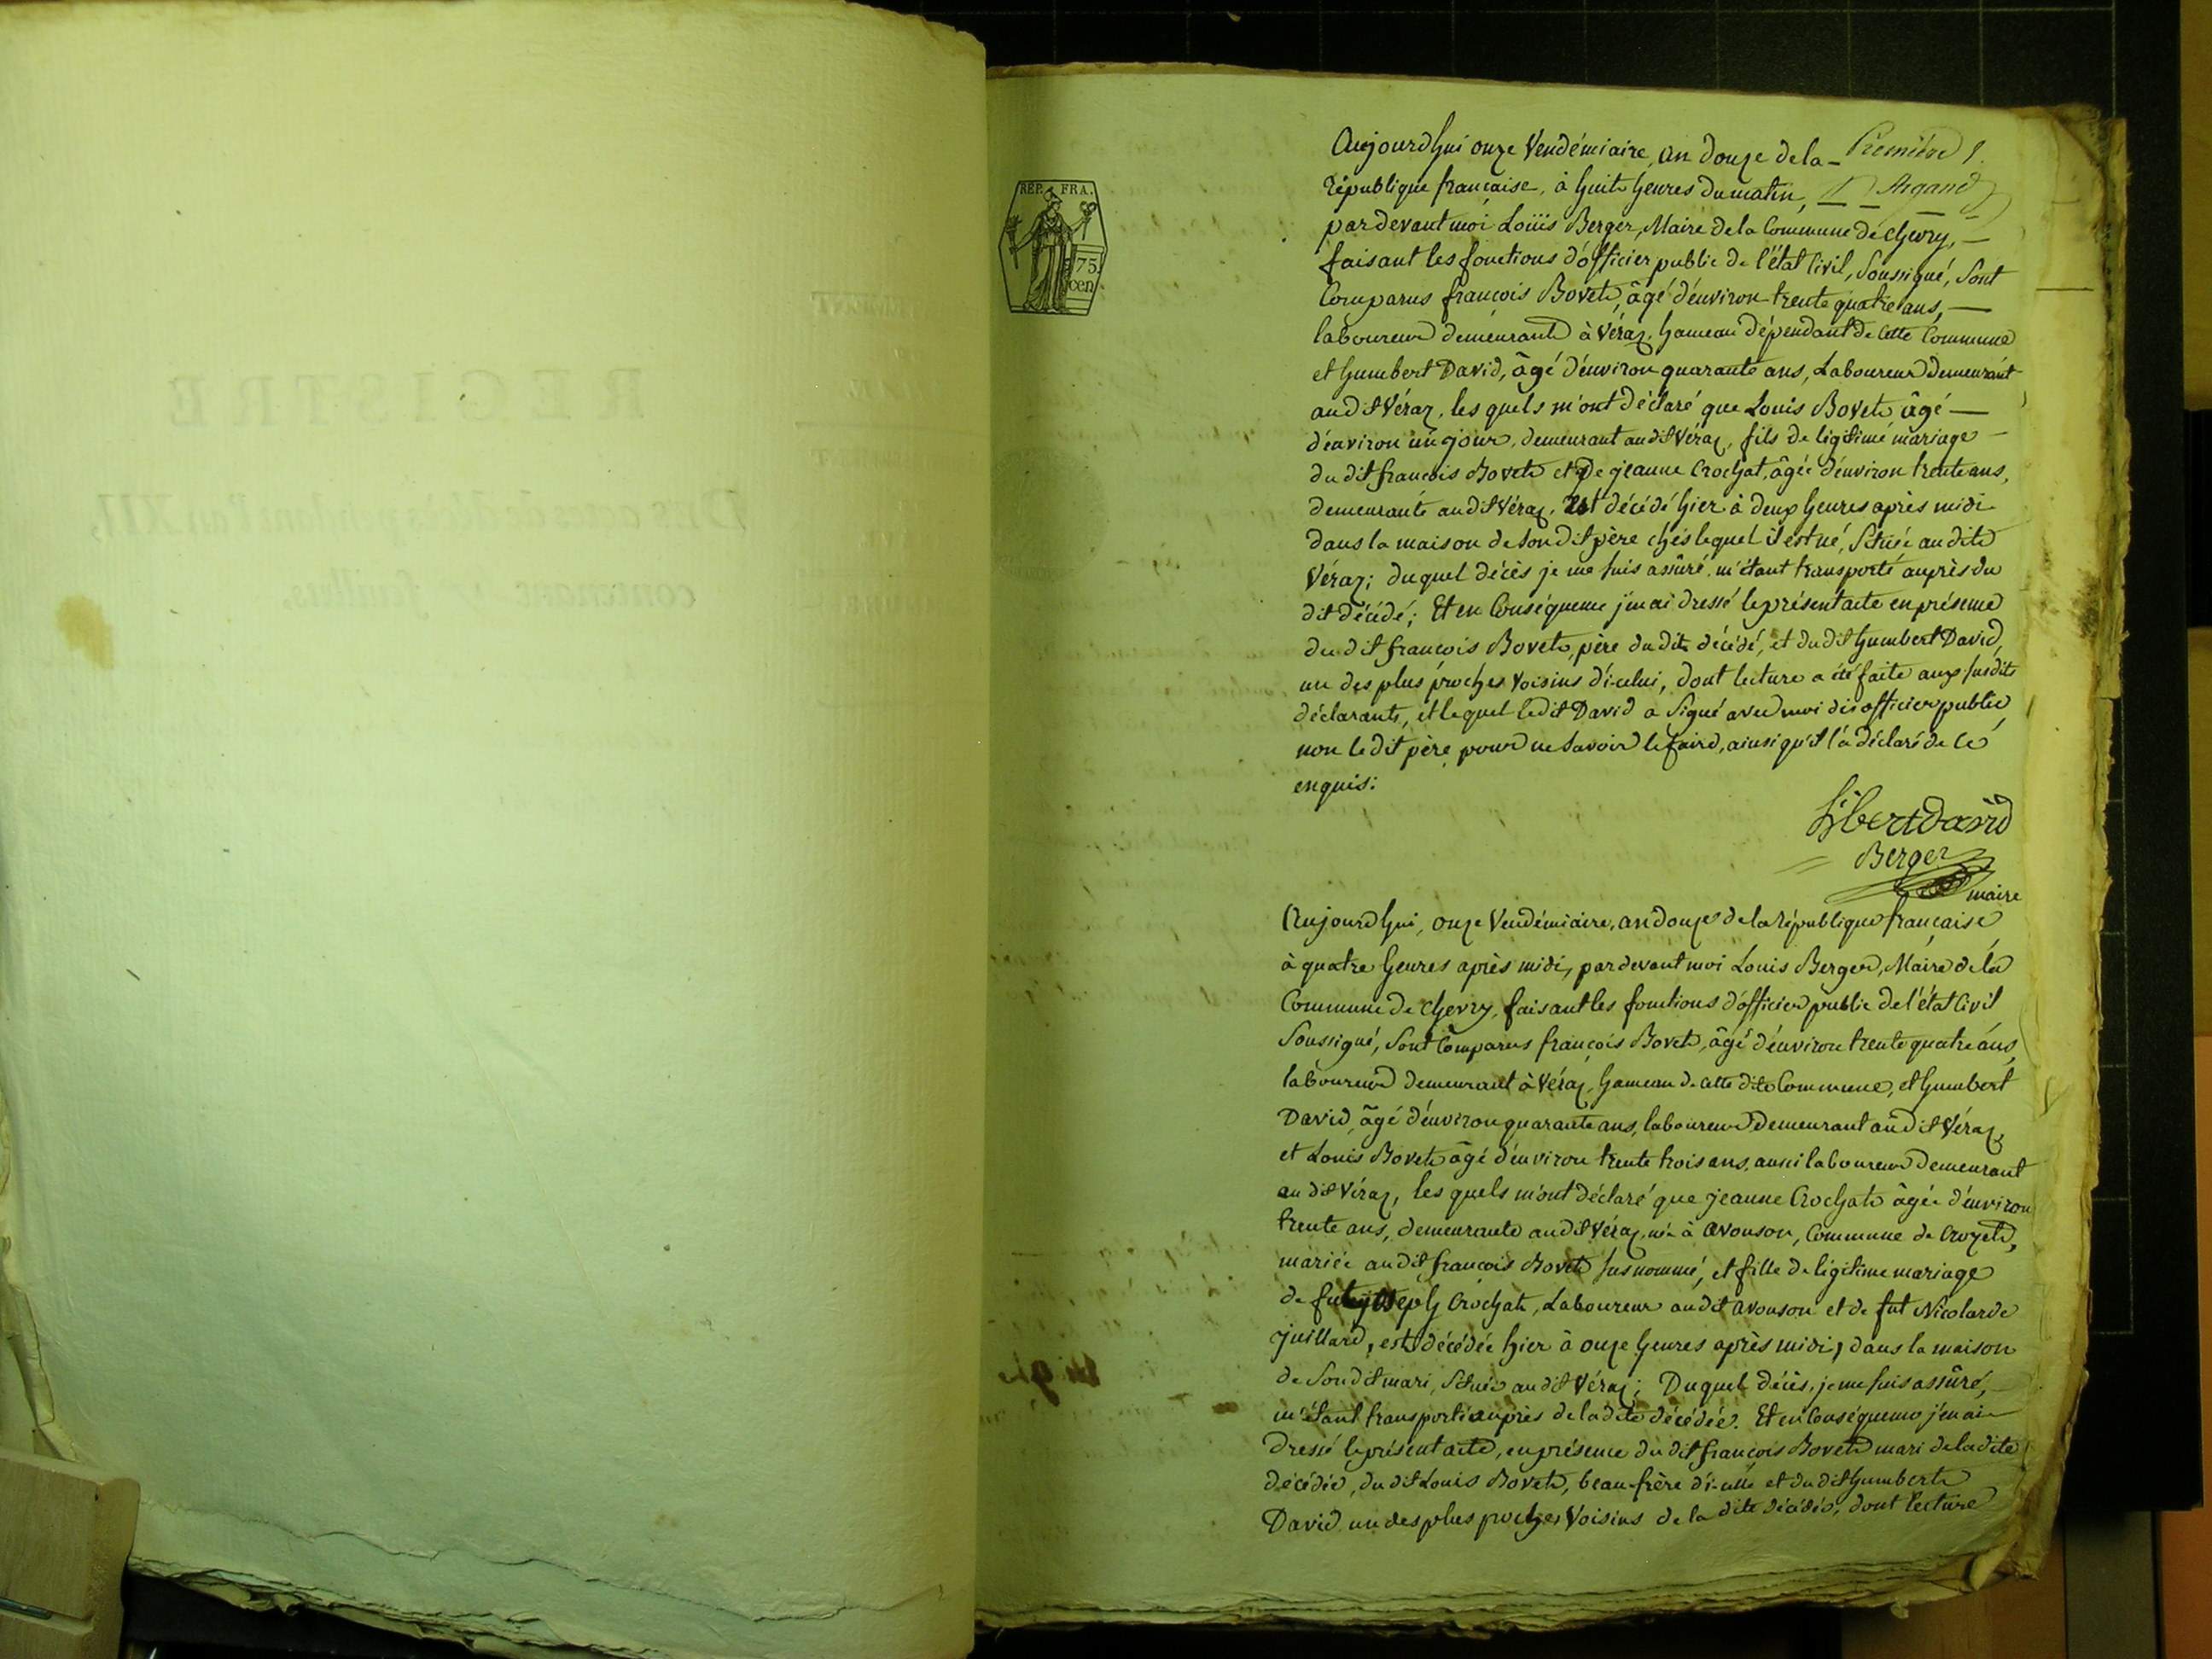 REGISTRE
contenant feuillets.
REP. FRA.
75
cen
Première f.
Argand
Aujourd'hui onze Vendémiaire, an douze de la
république française, à huit heures du matin,
pardevant moi Louis Berger, Maire de la Commune de Chevry,
faisant les fonctions d'officier public de l'état Civil, Soussigné, Sont
Comparus françois Bovet, âgé d'environ trente quatre ans,
laboureur demeurant à Véraz, hameau dépendant de Cette Commune
et humbert David, âgé d'environ quarante ans, Laboureur demeurant
au dit Véraz, les quels m'ont déclaré que Louis Bovet âgé
d'environ un jour, demeurant au dit Véraz, fils de légitime mariage
du dit françois Bovet et de jeanne Crochat, âgée d'environ trente ans,
demeurante au dit Véraz, Est décédé hier à deux heures après midi
dans la maison de Son dit père chés lequel il est né, Située au dit
Véraz; duquel décès je me suis assûré, m'étant transporté auprès du
dit décédé; Et en Conséquence j'en ai dressé le présent acte en présence
du dit françois Bovet, père du dit décédé, et du dit humbert David,
un des plus proches Voisins d'icelui, dont lecture a été faite aux susdits
déclarants, et lequel le dit David a Signé avec moi dit officier public
non le dit père pour ne Savoir le faire, ainsi qu'il l'a déclaré de Ce
enquis:
david
Berger
maire
Aujourd'hui, onze Vendémiaire, an douze de la république française
à quatre heures après midi, pardevant moi Louis Berger, Maire de la
Commune de Chevry, faisant les fonctions d'officier public de l'état Civil
Soussigné, Sont Comparus françois Bovet, âgé d'environ trente quatre ans,
laboureur demeurant à Véraz, hameau de cette dite Commune, et humbert
David, âgé d'environ quarante ans, laboureur demeurant au dit Véraz,
et Louis Bovet âgé d'environ trente trois ans, aussi laboureur demeurant
au dit Véraz, les quels m'ont déclaré que jeanne Crochat âgée d'environ
trente ans, demeurante au dit Véraz, née à avouson, Commune de Crozet,
mariée au dit françois Bovet susnommé, et fille de légitime mariage
de fut joseph Crochat, Laboureur au dit avouson et de fut Nicolarde
juillard, est décédée hier à onze heures après midi, dans la maison
de Son dit mari, Située au dit Véraz; Duquel décès, je me suis assûré,
m'étant transporté auprès de la dite décédée. Et en Conséquence j'en ai
dressé le présent acte, en présence du dit françois Bovet mari de la dite
décédée, du dit Louis Bovet, beau-frère d'icelle et du dit humbert
David un des plus proches Voisins de la dite décédée, dont lecture